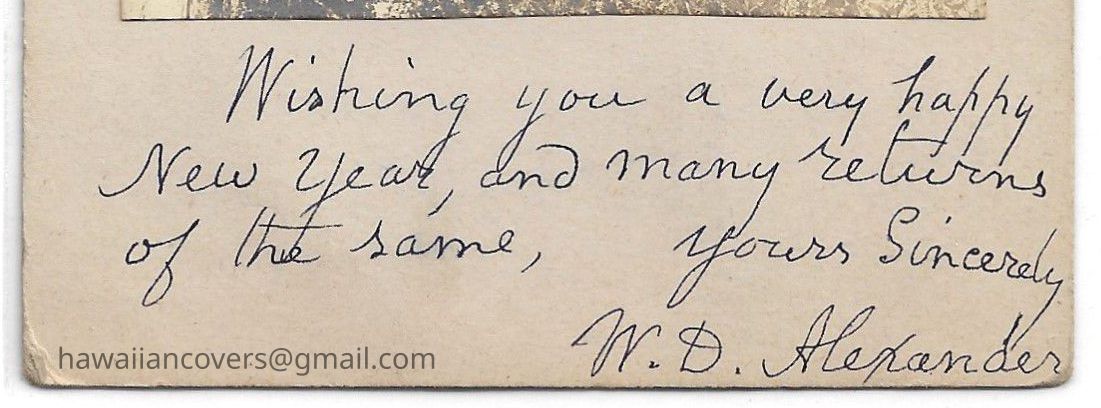 Wishing you a very happy
New Year, and many returns
of the same, yours Sincerely
W. D. Alexander
hawaiiancovers@gmail.com